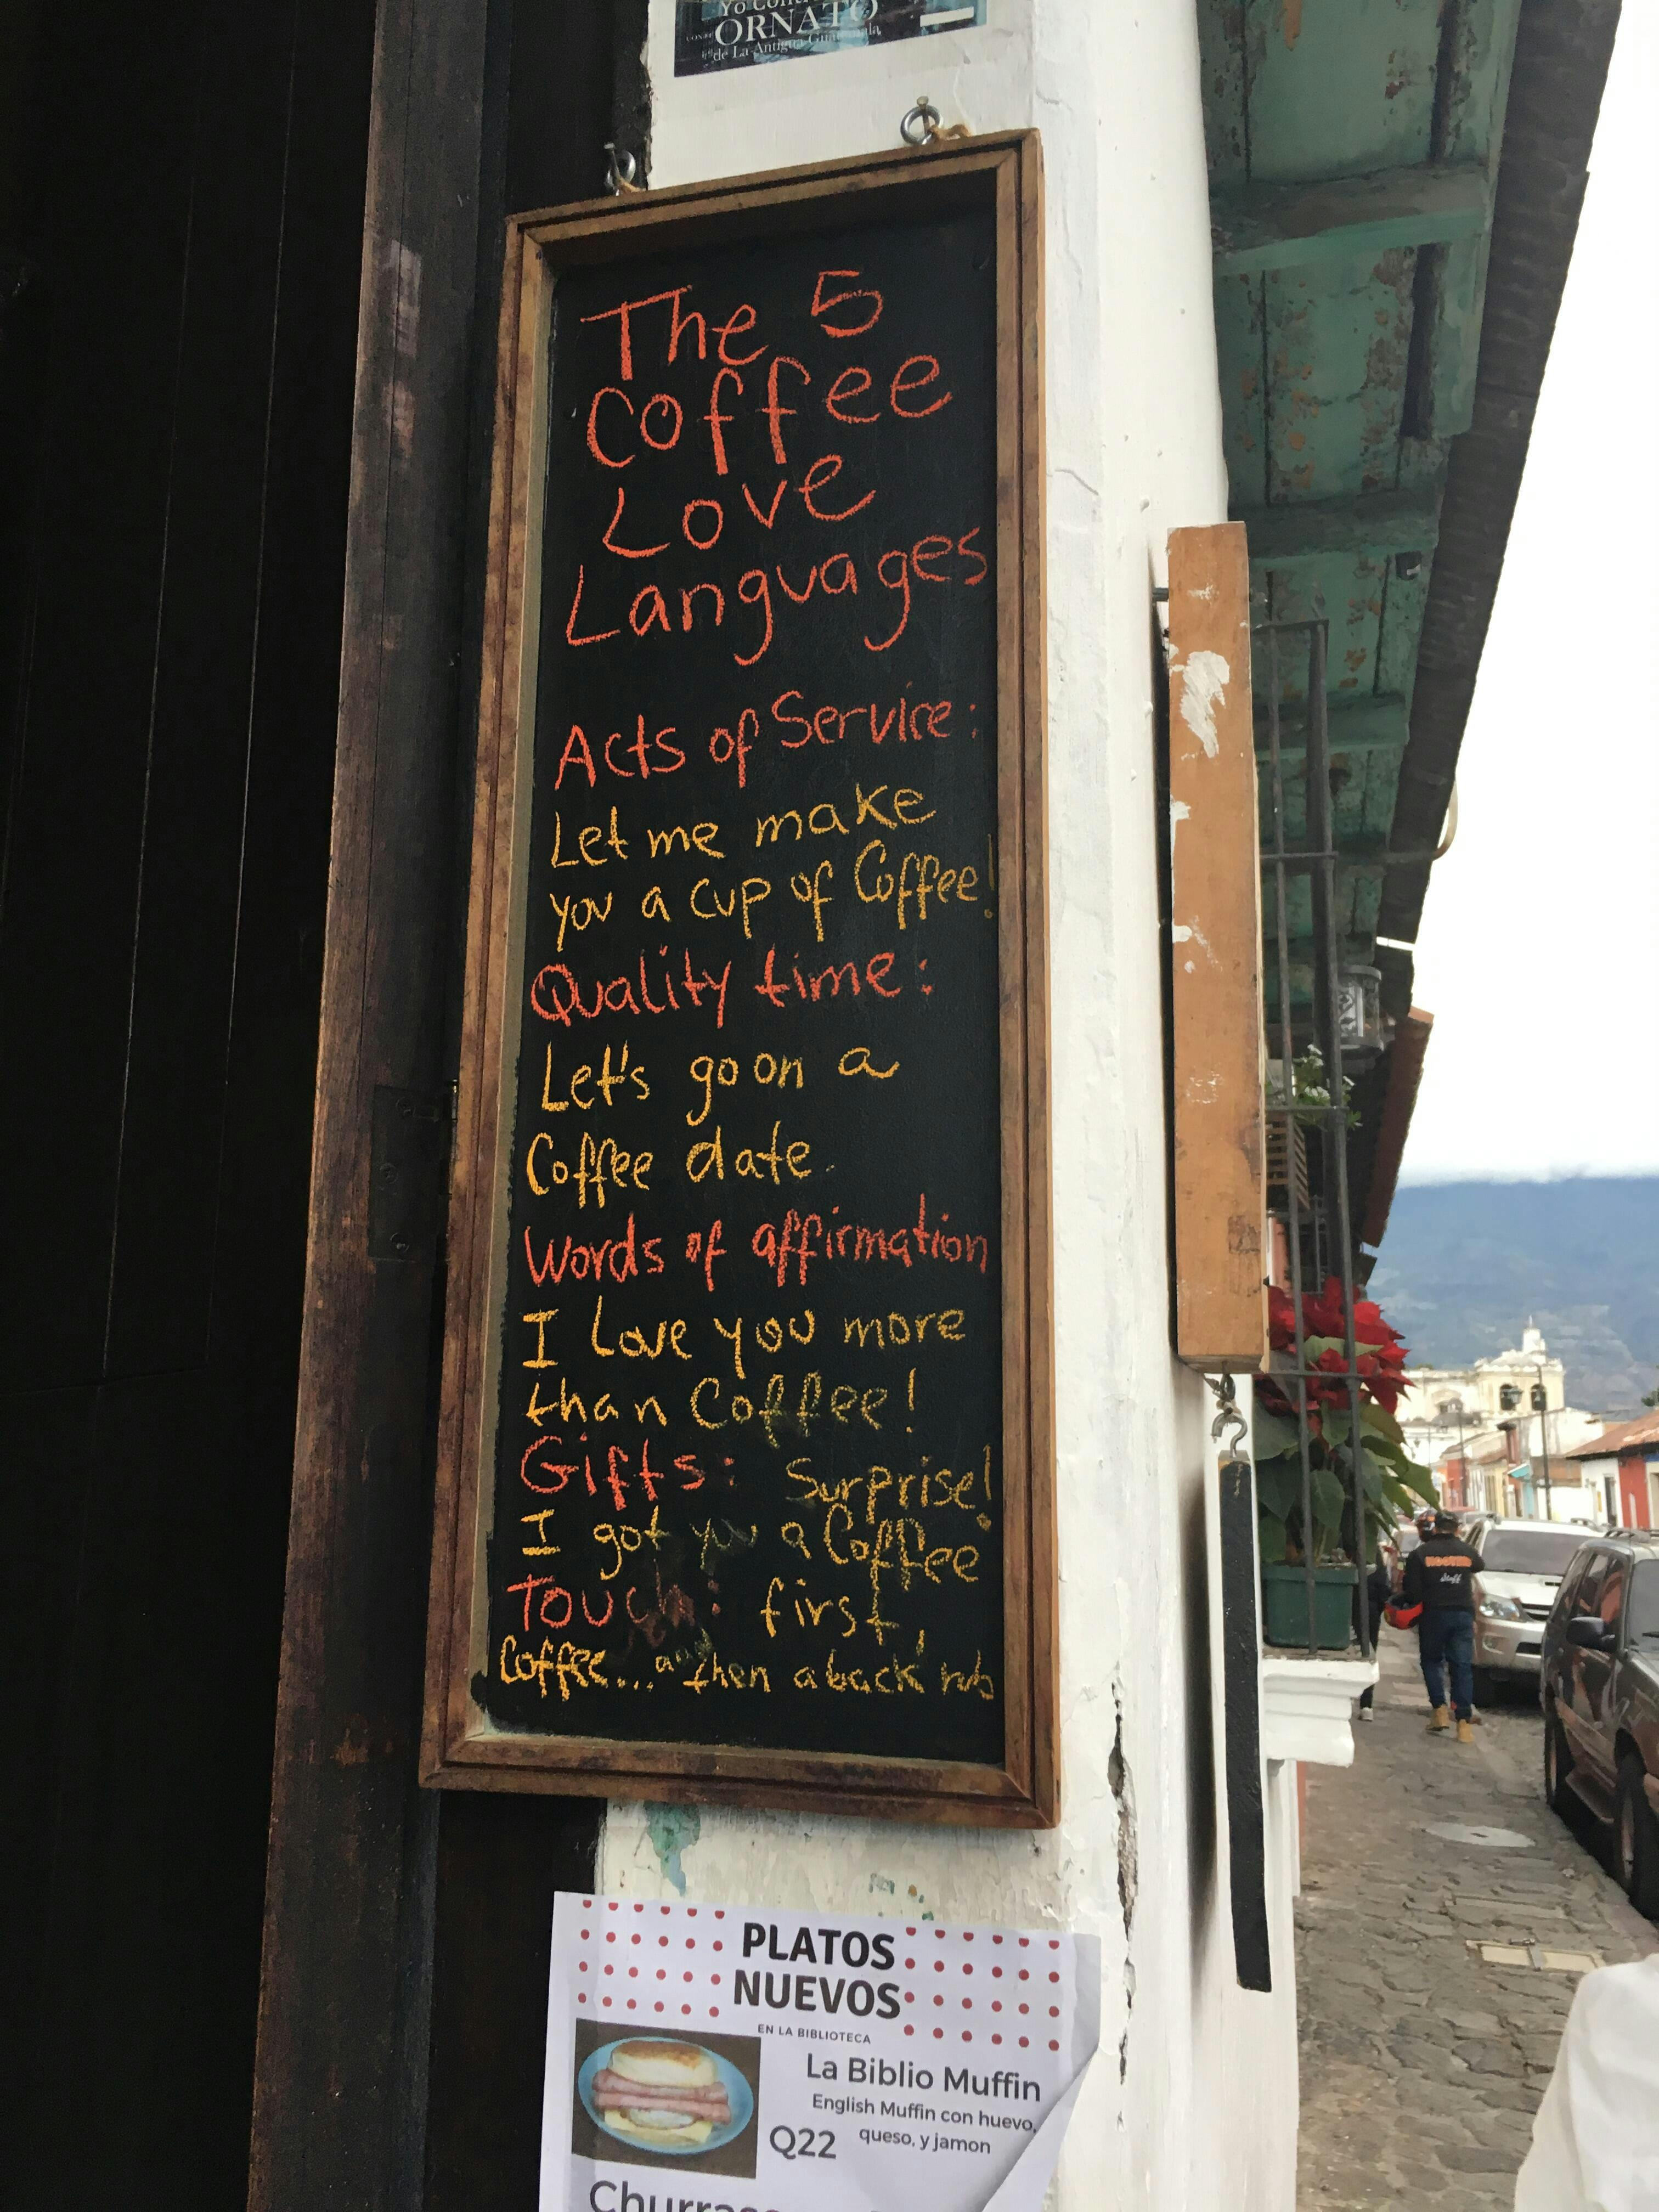 Yo Cont
ORNATO
de La Antigua Guatemala,
The 5
Coffee
Love
Languages
Acts of Service:
Let me make
you a cup of Coffee!
Quality time:
Let's go on a
Coffee date.
Words of affirmation
I Love you more
than Coffee!
Gifts: Surprise!
I got you a Coffee
Touch: first,
Coffee... and then a back rub
PLATOS
NUEVOS
EN LA BIBLIOTECA
La Biblio Muffin
English Muffin con huevo,
queso, y jamon
Q22
Churras
Staff